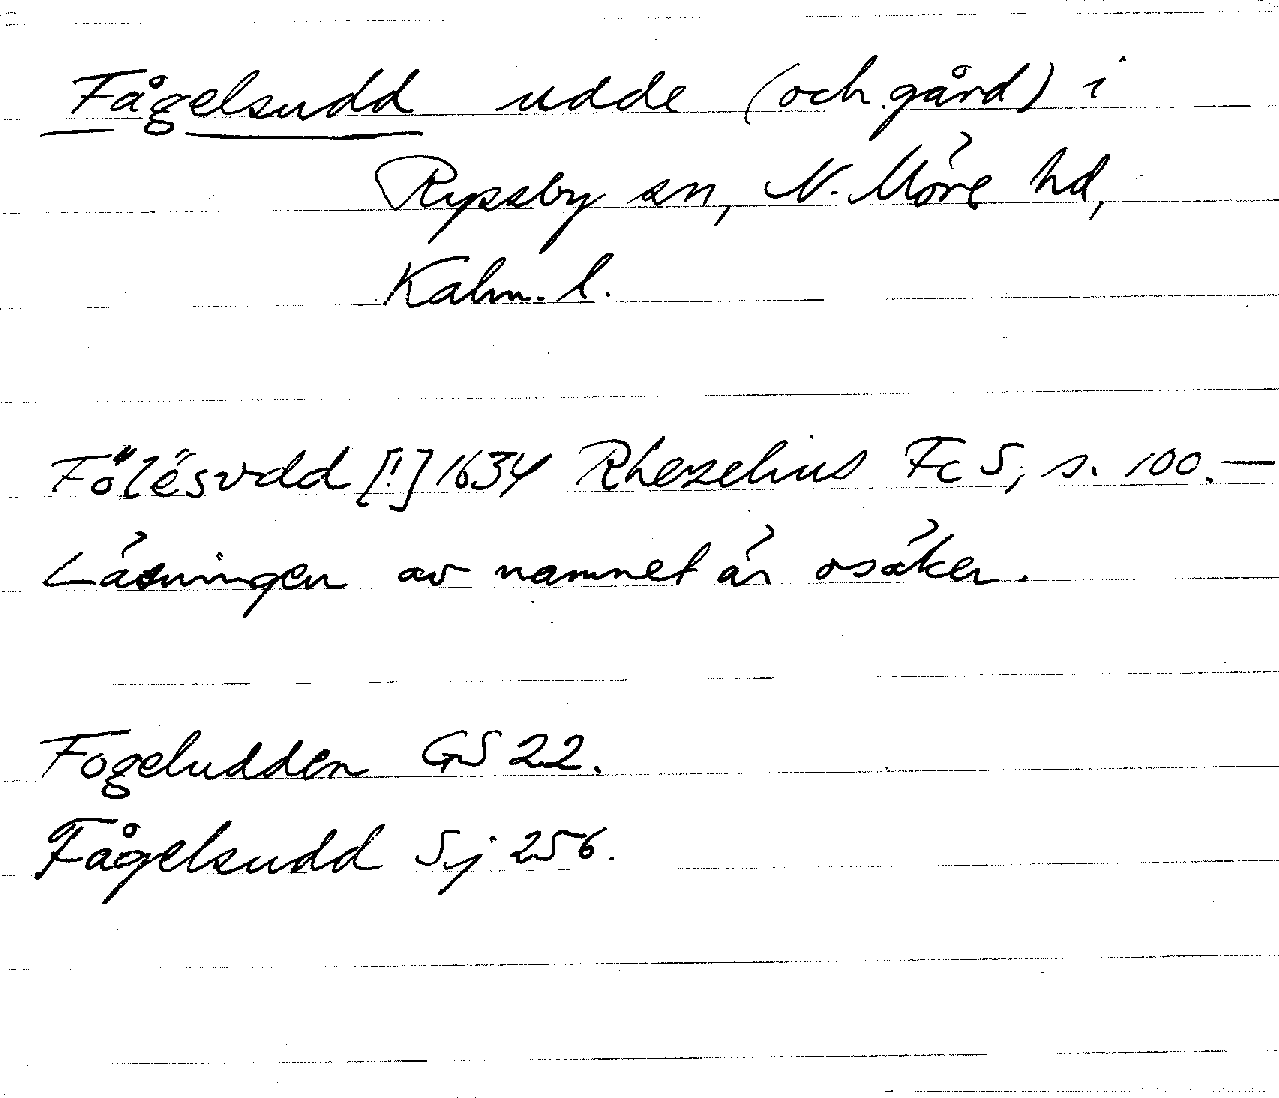 Fågelsudd udde (och gård) i
Ryssby sn, N. Möre hd,
Kalm. l.
Fölësvdd [!] 1634 Rhezelius Fc 5, s. 100. —
Läsningen av namnet är osäker.
Fogeludden GS 22.
Fågelsudd Sj 256.